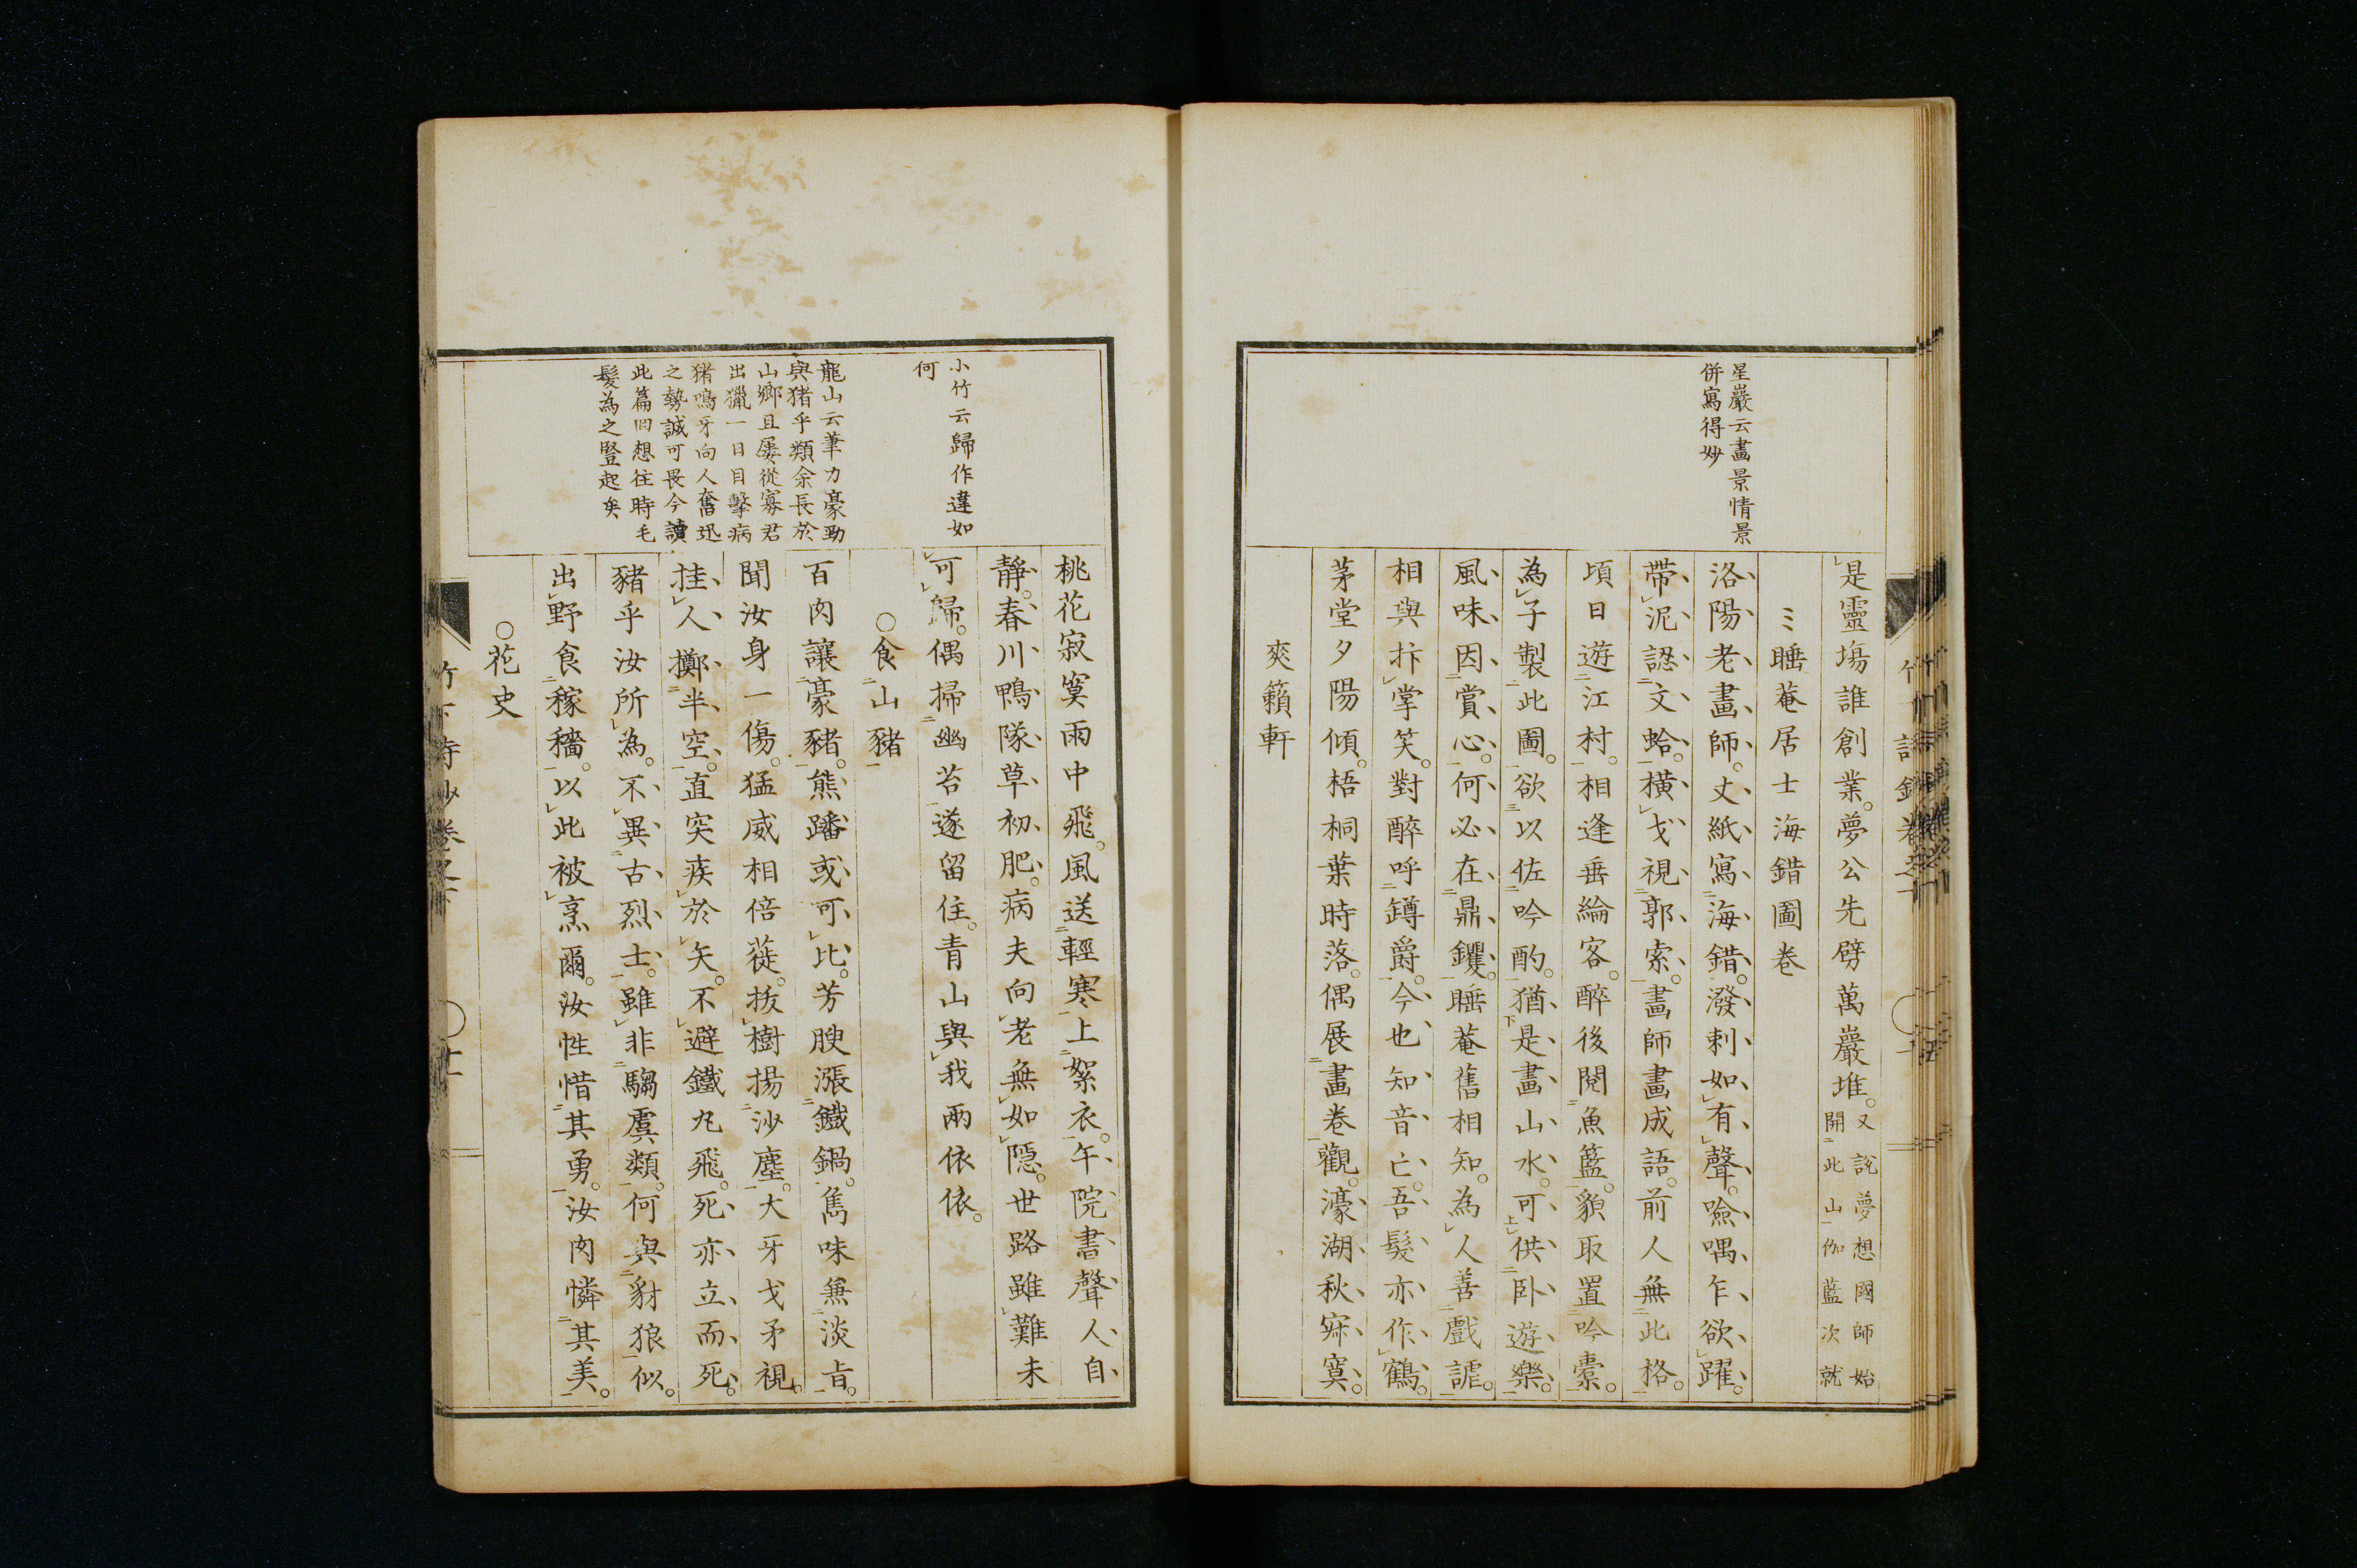 星巖云畵景情景
併寫得妙
是靈塲誰創業。夢公先劈萬巖堆。
又說夢想國師始
開此山伽藍次就
睡菴居士海錯圖卷
洛陽老畫師。丈紙寫海錯。潑剌如有聲。噞喁乍欲躍。
帶泥認文蛤。橫戈視郭索。畫師畫成語。前人無此格。
頃日遊江村。相逢垂綸客。醉後閱魚籃。貌取置吟橐。
為子製此圖。欲以佐吟酌。猶是畫山水。可供卧遊樂。
風味因賞心。何必在鼎钁。睡菴舊相知。為人善戲謔。
相與抃掌笑。對醉呼鐏爵。今也知音亡。吾髮亦作鶴。
茅堂夕陽傾。梧桐葉時落。偶展畫卷觀。濠湖秋寂寞。
爽籟軒
小竹云歸作違如
何
龍山云筆力豪勁
與猪乎類余長於
山鄉且屢從寡君
出獵一日目擊病
猪鳴牙向人奮迅
之勢誠可畏今讀
此篇回想往時毛
髮為之豎起矣
桃花寂寞雨中飛。風送輕寒上絮衣。午院書聲人自
靜。春川鴨隊草初肥。病夫向老無如隱。世路雖難未
可歸。偶掃幽苔遂留住。青山與我兩依依。
○食山豬
百肉讓豪豬。熊蹯或可比。芳腴漲鐵鍋。雋味兼淡旨。
聞汝身一傷。猛威相倍蓰。拔樹揚沙塵。大牙戈矛視。
挂人擲半空。直突疾於矢。不避鐵丸飛。死亦立而死。
豬乎汝所為。不異古烈士。雖非騶虞類。何與豺狼似。
出野食稼穡。以此被烹爾。汝性惜其勇。汝肉憐其美。
○花史